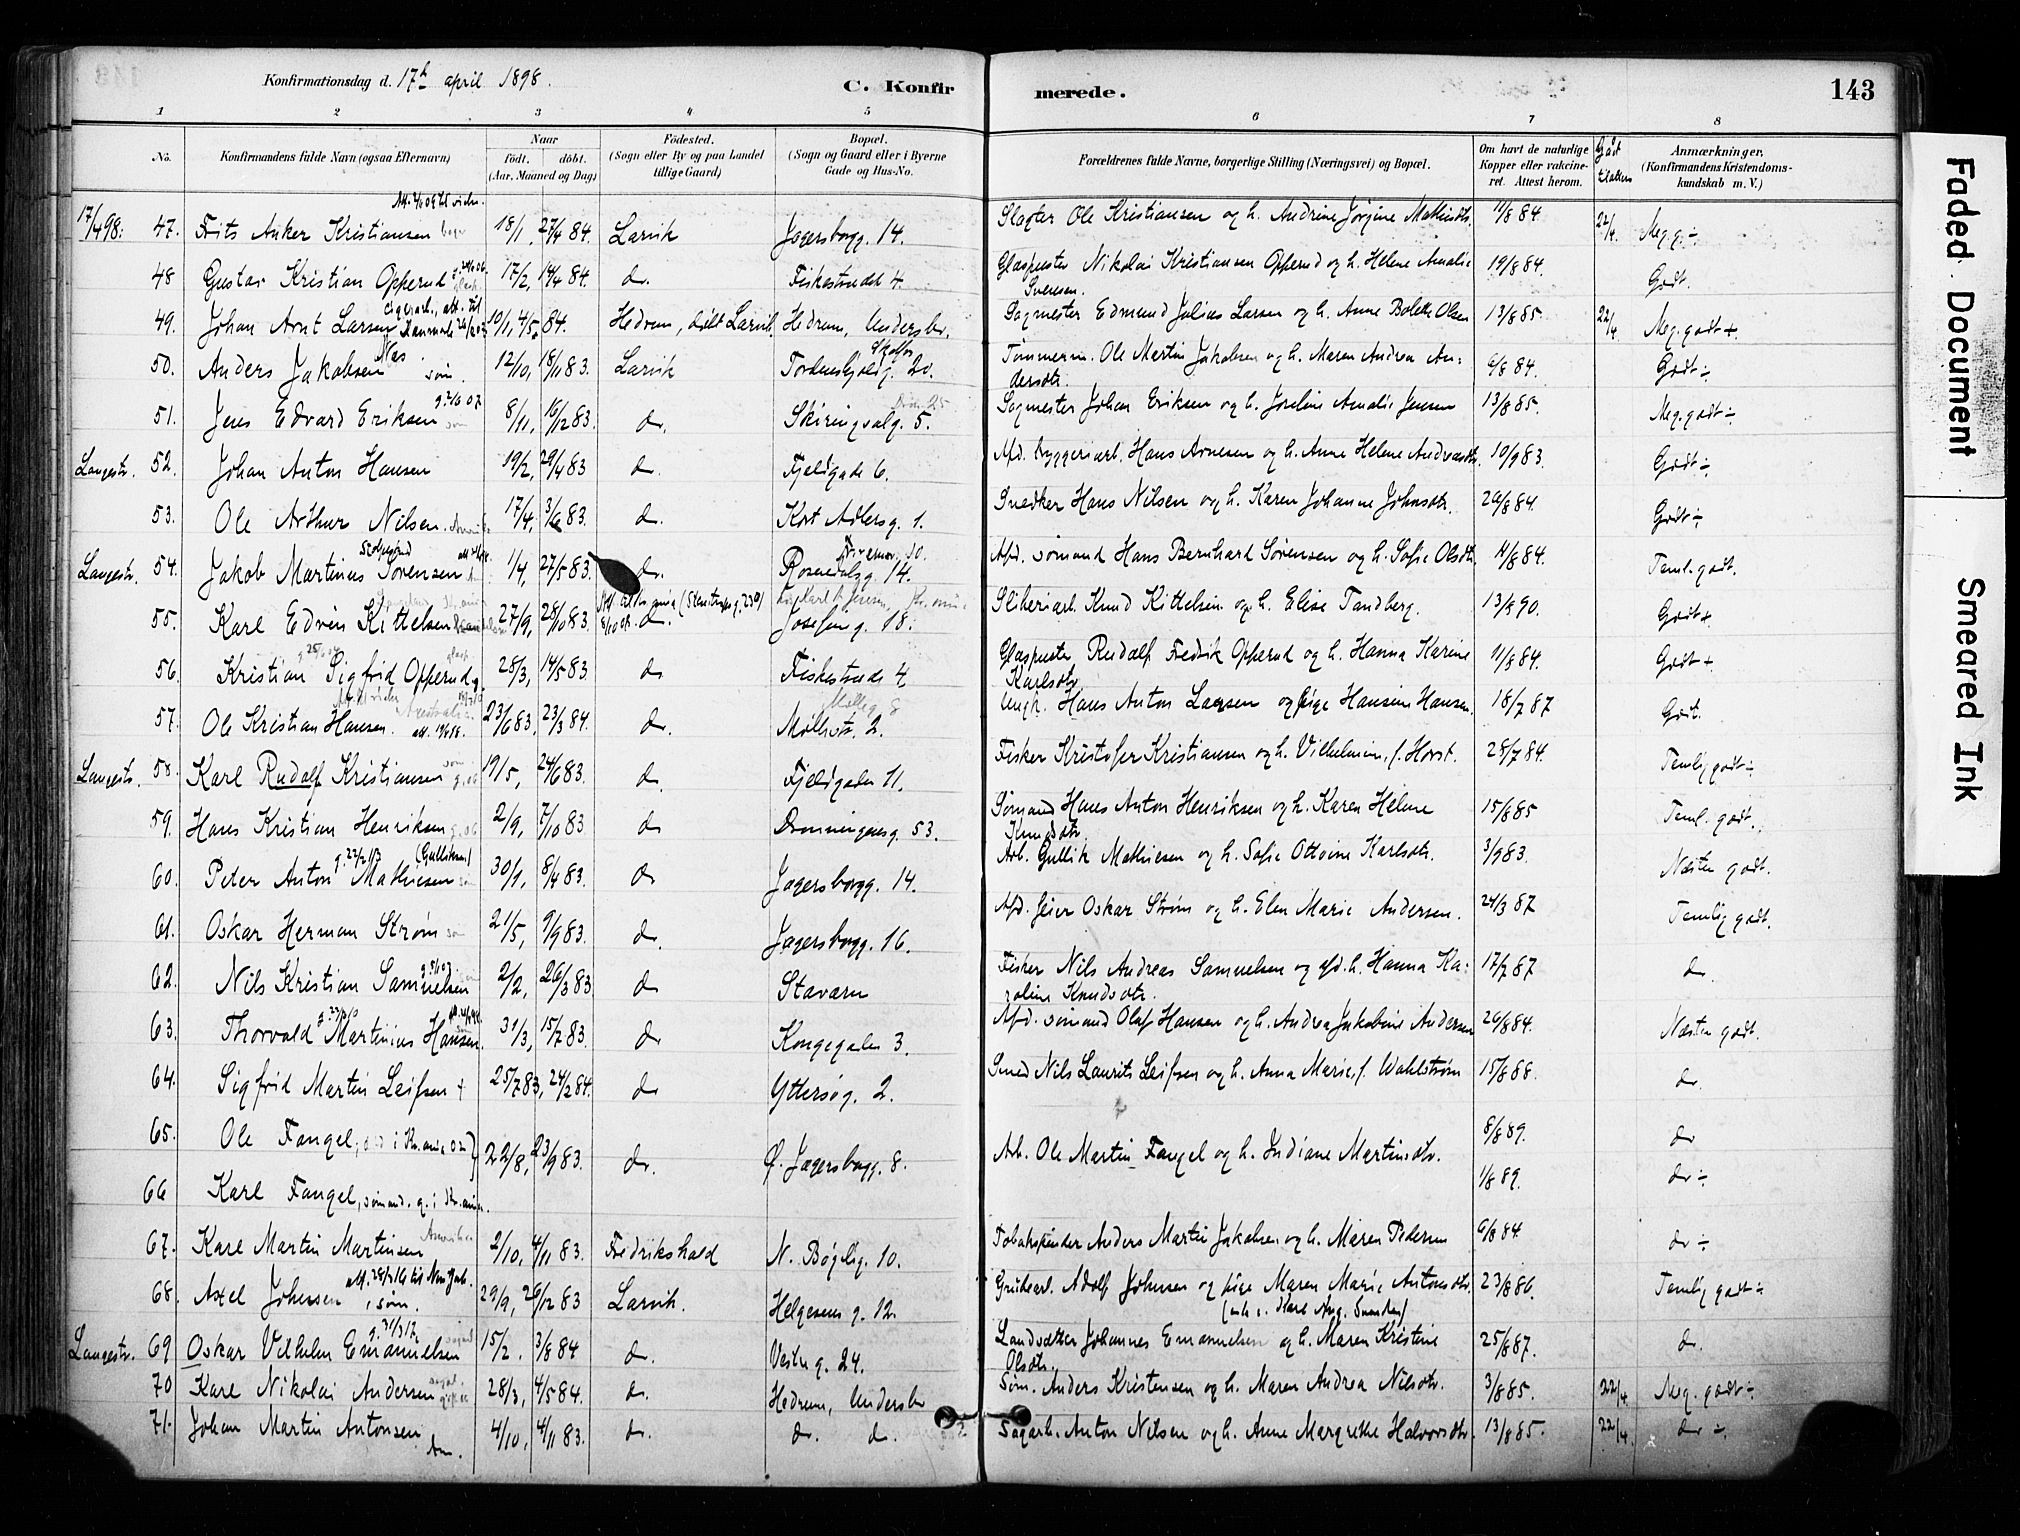 Konfirmationsdag d. 17de april 1898.
C. Konfirmerede.
143
1 2 3 4 5 6 7 8
No.
Konfirmandens fulde Navn (ogsaa Efternavn)
Naar
født. døbt.
(Aar, Maaned og Dag)
Fødested.
(Sogn eller By og paa Landet
tillige Gaard)
Bopæl.
(Sogn og Gaard eller i Byerne
Gade og Hus-No.
Forældrenes fulde Navne, borgerlige Stilling (Næringsvei) og Bopæl.
Om havt de naturlige
Kopper eller vakcine-
ret. Attest herom.
Gaat
til alters
Anmærkninger.
(Konfirmandens Kristendoms-
kundskab m. V.)
17/4 98. 47. Frits Anker Kristiansen 18/1, 27/4 84. Larvik Jegersborgg. 14. Slagter Ole Kristiansen og h. Andrine Jørgine Mathisdtr. 11/8 84. 22/4. Meg. g. ÷
48 Gustav Kristian Opperud 17/2, 14/4 84. do. Fiskestrædet 4 Glaspuster Nikolai Kristiansen Opperud og h. Helene Amalie Svensen. 19/8 84. Godt.
49. Johan Arnt Larsen 10/1, 4/5 84. Hedrum, døbt Larvik Hedrum, Undersbo. Sagmester Edmund Julius Larsen og h. Anne Bolette Olsen 13/8 85. 22/4 Meg. godt +
50. Anders Jakobsen Næs. søm. 12/10, 18/11 83. Larvik Tordenskjoldg. 20. Tømmerm. Ole Martin Jakobsen og h. Maren Andrea Andersdtr. 6/8 84. Godt ÷
51. Jens Edvard Eriksen 8/11, 16/12 83. do. Skiringsalg. 5. Sagmester Johan Eriksen og h. Josefine Amalie Jensen 13/8 85. Meg. godt ÷
Langestr. 52. Johan Anton Hansen 19/2, 29/4 83 do. Fjeldgade 6. Afd. bryggeriarb. Hans Arnesen og h. Anne Helene Andreasdtr. 10/9 83. Godt ÷
53. Ole Arthur Nilsen. 17/4, 3/6 83. do. Kort Adlersg. 1. Snedker Hans Nilsen og h. Karen Johanne Johnsdtr. 26/8 84. Godt ÷
Langestr. 54. Jakob Martinius Sørensen 1/4, 27/5 83. do. Rosendalsg. 14. Afd. sømand Hans Bernhard Sørensen og h. Sofie Olsdtr. 11/8 84. Teml. godt.
55. Karl Edvin Kittelsen 27/9, 28/10 83. do. Josefineg. 18. Sliberiarb. Knud Kittelsen og h. Elise Tandberg. 13/8 90. Godt +
56. Kristian Sigfrid Opperud 28/3, 14/5 83 do Fiskestræde 4 Glaspuster Rudolf Fredrik Opperud og h. Hanna Karine Karlsdtr. 11/8 84. Godt +
57. Ole Kristian Hansen. 23/6 83, 23/3 84. do. Møllestr. 2. Ungk. Hans Anton Larsen og pige Hansine Hansen. 18/7 87 Godt.
Langestr. 58. Karl Rudolf Kristiansen 19/5, 24/6 83. do Fjeldgaden 11. Fisker Kristofer Kristiansen og h. Vilhelmine, f. Horst. 28/7 84. Temlig godt ÷
59. Hans Kristian Henriksen 2/9, 7/10 83. do Dronningensg. 53. Sømand Hans Anton Henriksen og h. Karen Helene Knudsdtr. 15/8 85 Teml. godt.
60. Peter Anton Mathiesen (Gulliksen) 30/1, 8/4 83. do Jegersborgg. 14. Arb. Gullik Mathiesen og h. Sofie Ottoine Karlsdtr. 3/9 83. Næsten godt.
61. Oskar Herman Strøm 21/5, 9/9 83. do. Jegersborgg. 16. Afd. feier Oskar Strøm og h. Elen Marie Andersen. 24/3 87 Temlig godt.
62. Nils Kristian Samuelsen 2/2, 26/3 83 do Stavern Fisker Nils Andreas Samuelsen og afd. h. Hanna Karoline Knudsdtr. 17/2 87 do
63. Thorvald Martinius Hansen. 31/3, 15/7 83. do Kongegaden 3. Afd. sømand Olaf Hansen og h. Andrea Jakobine Andersen 26/8 84. Næsten godt.
64. Sigfrid Martin Leifsen + 25/7 83, 24/2 84. do Yttersøg. 2. Smed Nils Laurits Leifsen og h. Anna Marie, f. Wahlstrøm 15/8 88. do.
65. Ole Fangel, 22/8, 23/9 83. do. Ø. Jegersborgg. 8. Arb. Ole Martin Fangel og h. Indiane Martinsdtr. 8/8 89. do
66 Karl Fangel, sømand. g. i Kr.ania. 1/8 89. do ÷
67. Karl Martin Martinsen 2/10, 4/11 83. Fredrikshald N. Bøgelig. 10. Tobakspinder Anders Martin Jakobsen og h. Maren Pedersen 6/8 84. do ÷
68. Axel Johnsen, søm. 29/9, 26/12 83 Larvik. Helgesens g. 12. Grubearb. Adolf Johnsen og pige Maren Marie Antonsdtr. 23/8 86. Temlig godt ÷
Langestr. 69 Oskar Vilhelm Emanuelsen 15/2. 3/8 84 do. Vestre g. 24. Landsætter Johannes Emanuelsen og h. Maren Kristine Olsdtr. 25/8 87. do.
70 Karl Nikolai Andersen 28/3, 4/5 84. do. Hedrum, Undersbo Søm. Anders Kristensen og h. Maren Andrea Nilsdtr. 3/8 85. 22/4 Meg. godt ÷
71. Johan Martin Antonsen Am. 4/10, 4/11 83. do. do. do. Sagarb. Anton Nilsen og h. Anne Margrethe Halvorsdtr. 13/8 85. 22/4. do ÷
Faded Document
Smeared Ink